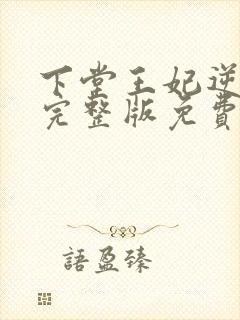 下堂王妃逆
完整版免費
語盈臻